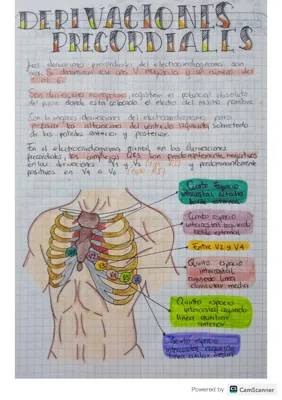 DERIVACIONES
PRECORDIALES
Las derivaciones precordiales del electrocardiograma son
seis. Se denominan con una V mayúscula y un número del
1 al 6.
Son derivaciones monopolares, registran el potencial absoluto
del punto donde está colocado el electrodo del mismo nombre.
Son las mejores derivaciones del electrocardiograma para
precisar las alteraciones del ventrículo izquierdo, sobre todo
de las paredes anterior y posterior.
En el electrocardiograma normal, en las derivaciones
precordiales, los complejos QRS son predominantemente negativos
en las derivaciones V1 y V2 y predominantemente
positivos en V4 a V6
Cuarto espacio
intercostal derecho
borde esternal
Cuarto espacio
intercostal izquierdo
borde esternal
Entre V2 y V4
Quinto espacio
intercostal
izquierdo línea
clavicular media
Quinto espacio
intercostal izquierdo
línea auxiliar
anterior
Sexto espacio
intercostal izquierdo
línea axilar media
Powered by CS CamScanner